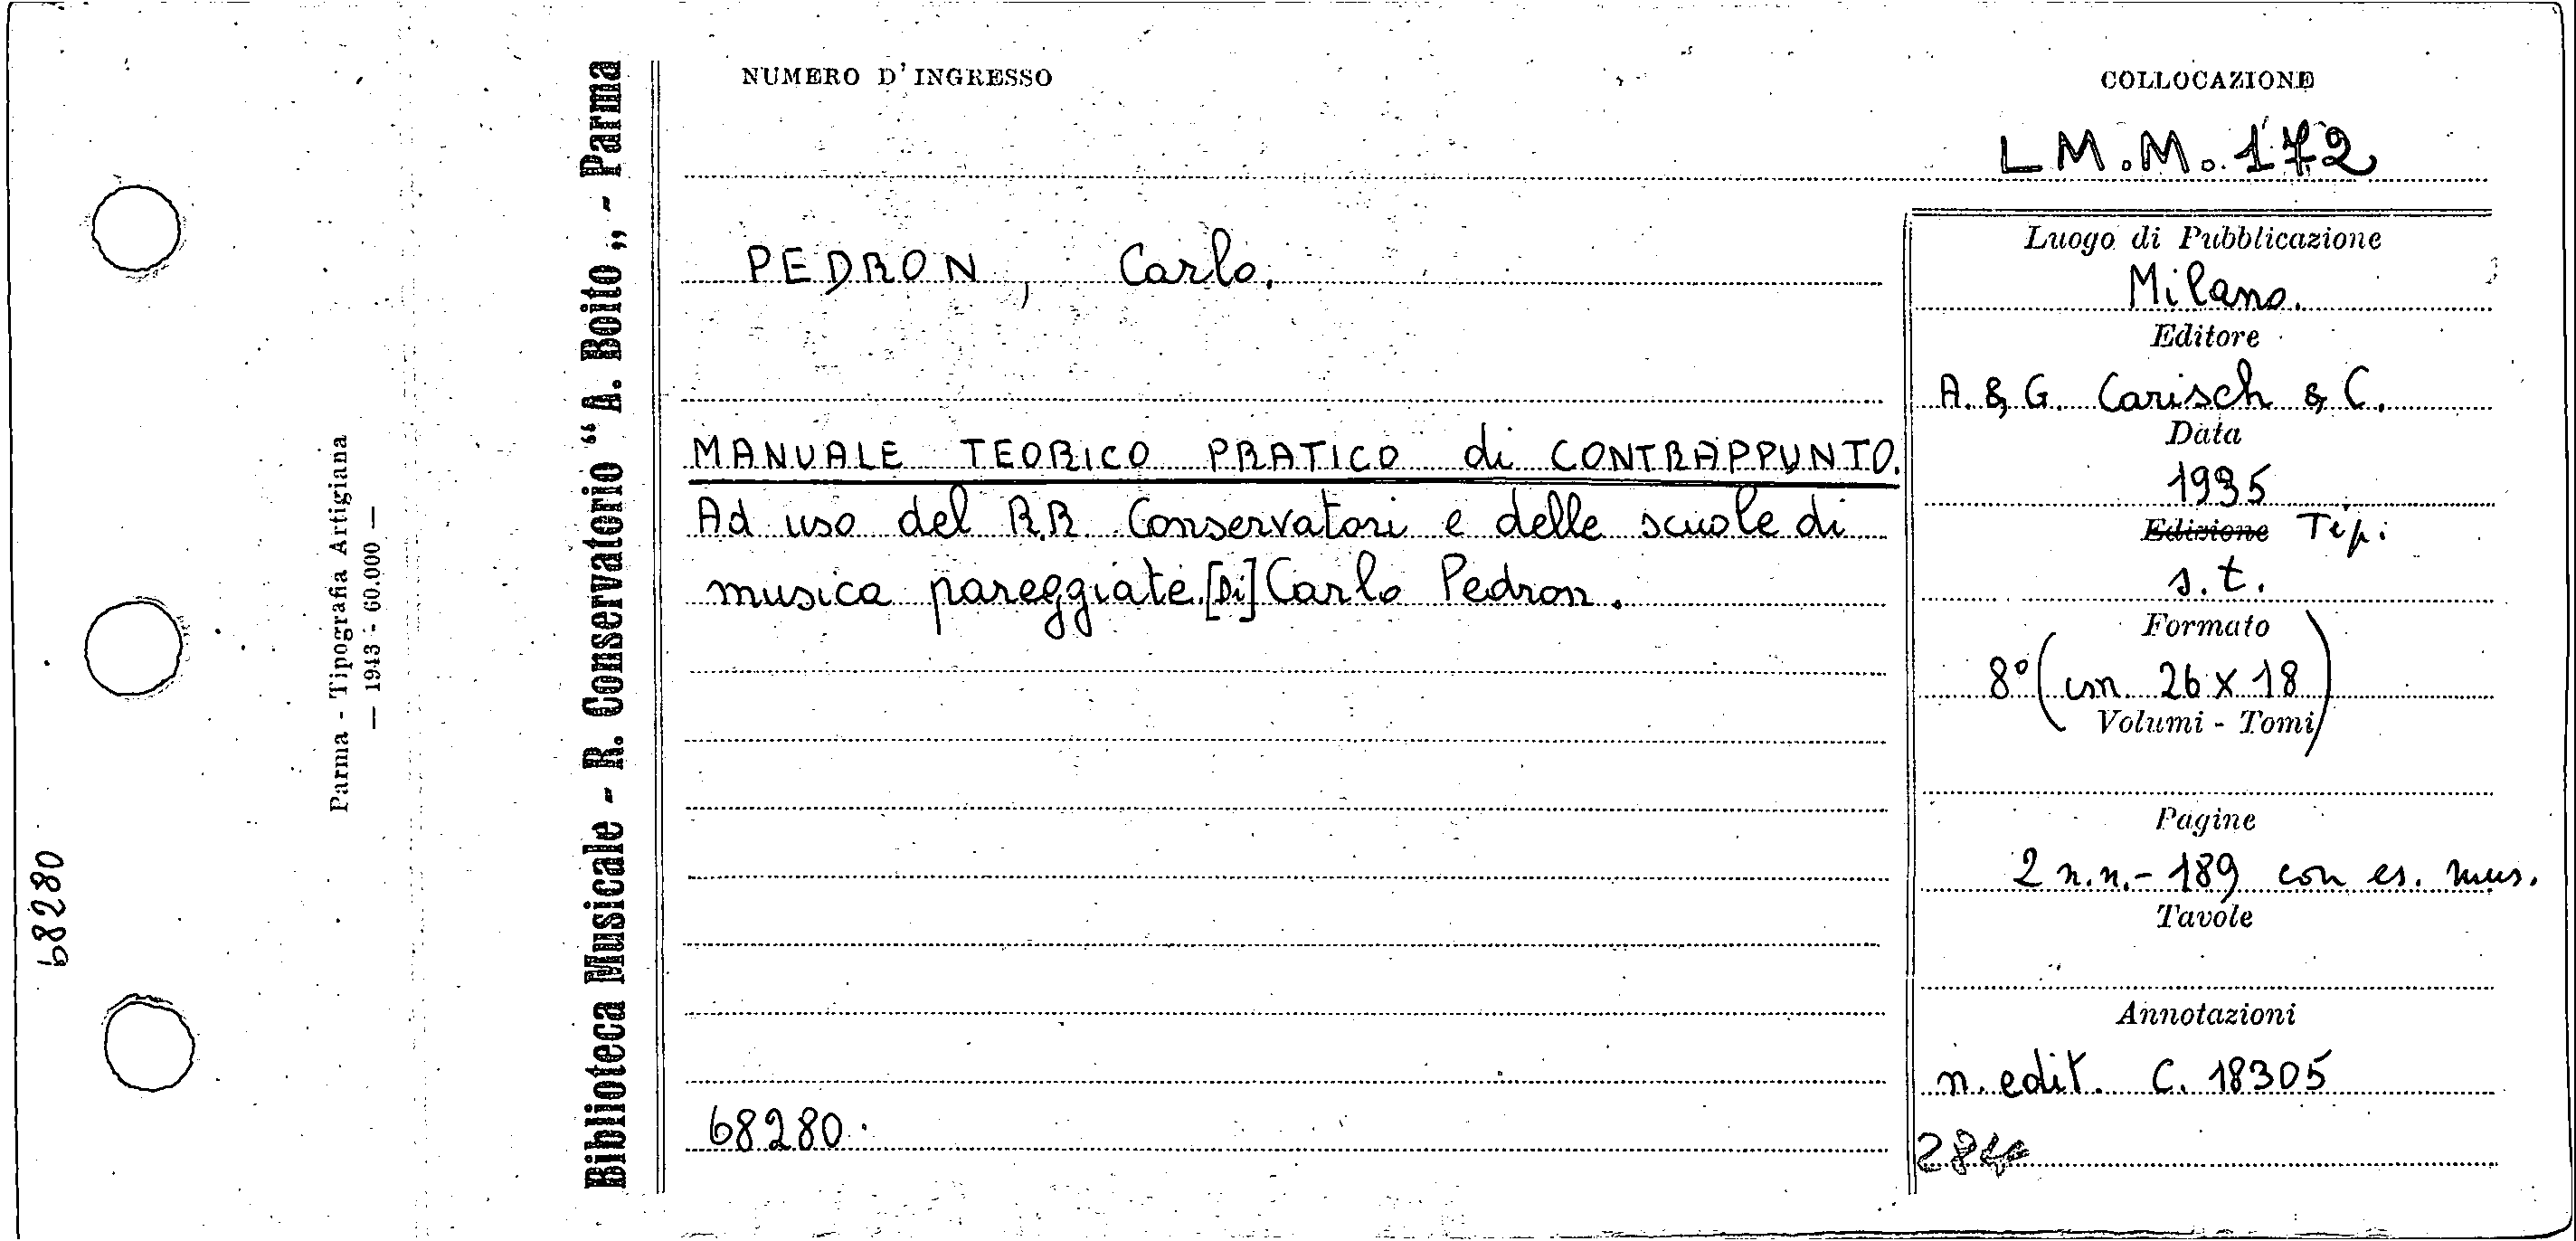 NUMERO D'INGRESSO
COLLOCAZIONE
LM.M. 172
PEDRON, Carlo.
MANUALE TEORICO PRATICO di CONTRAPPUNTO.
Ad uso del R.R. Conservatori e delle scuole di
musica pareggiate. [Di] Carlo Pedron.
68280.
Luogo di Pubblicazione
Milano.
Editore
A. & G. Carisch & C.
Data
1935
Edizione Tip.
s.t.
Formato
8° (cm 26 x 18)
Volumi - Tomi
Pagine
2 n.n. - 189 con es. mus.
Tavole
Annotazioni
n. edit. C. 18305
Biblioteca Musicale - R. Conservatorio “A. Boito„ - Parma
Parma - Tipografia Artigiana
— 1943 - 60.000 —
68280